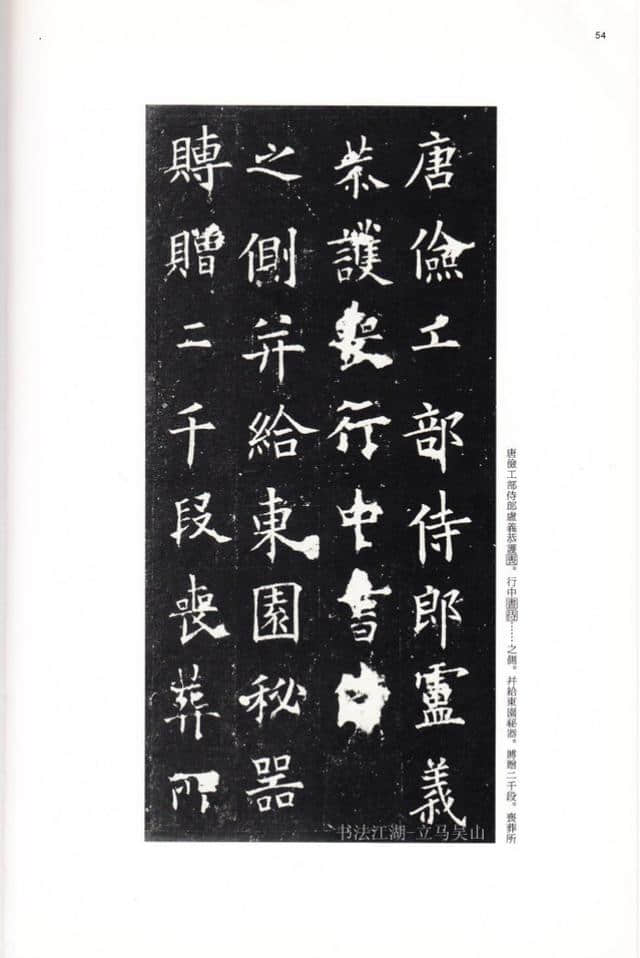 54
唐儉工部侍郎盧義
恭護喪行中書侍
之側并給東園秘器
賻贈二千段喪葬所
唐儉工部侍郎盧義恭護喪。行中書侍……之側。并給東園祕器。賻贈二千段。喪葬所
书法江湖-立马吴山